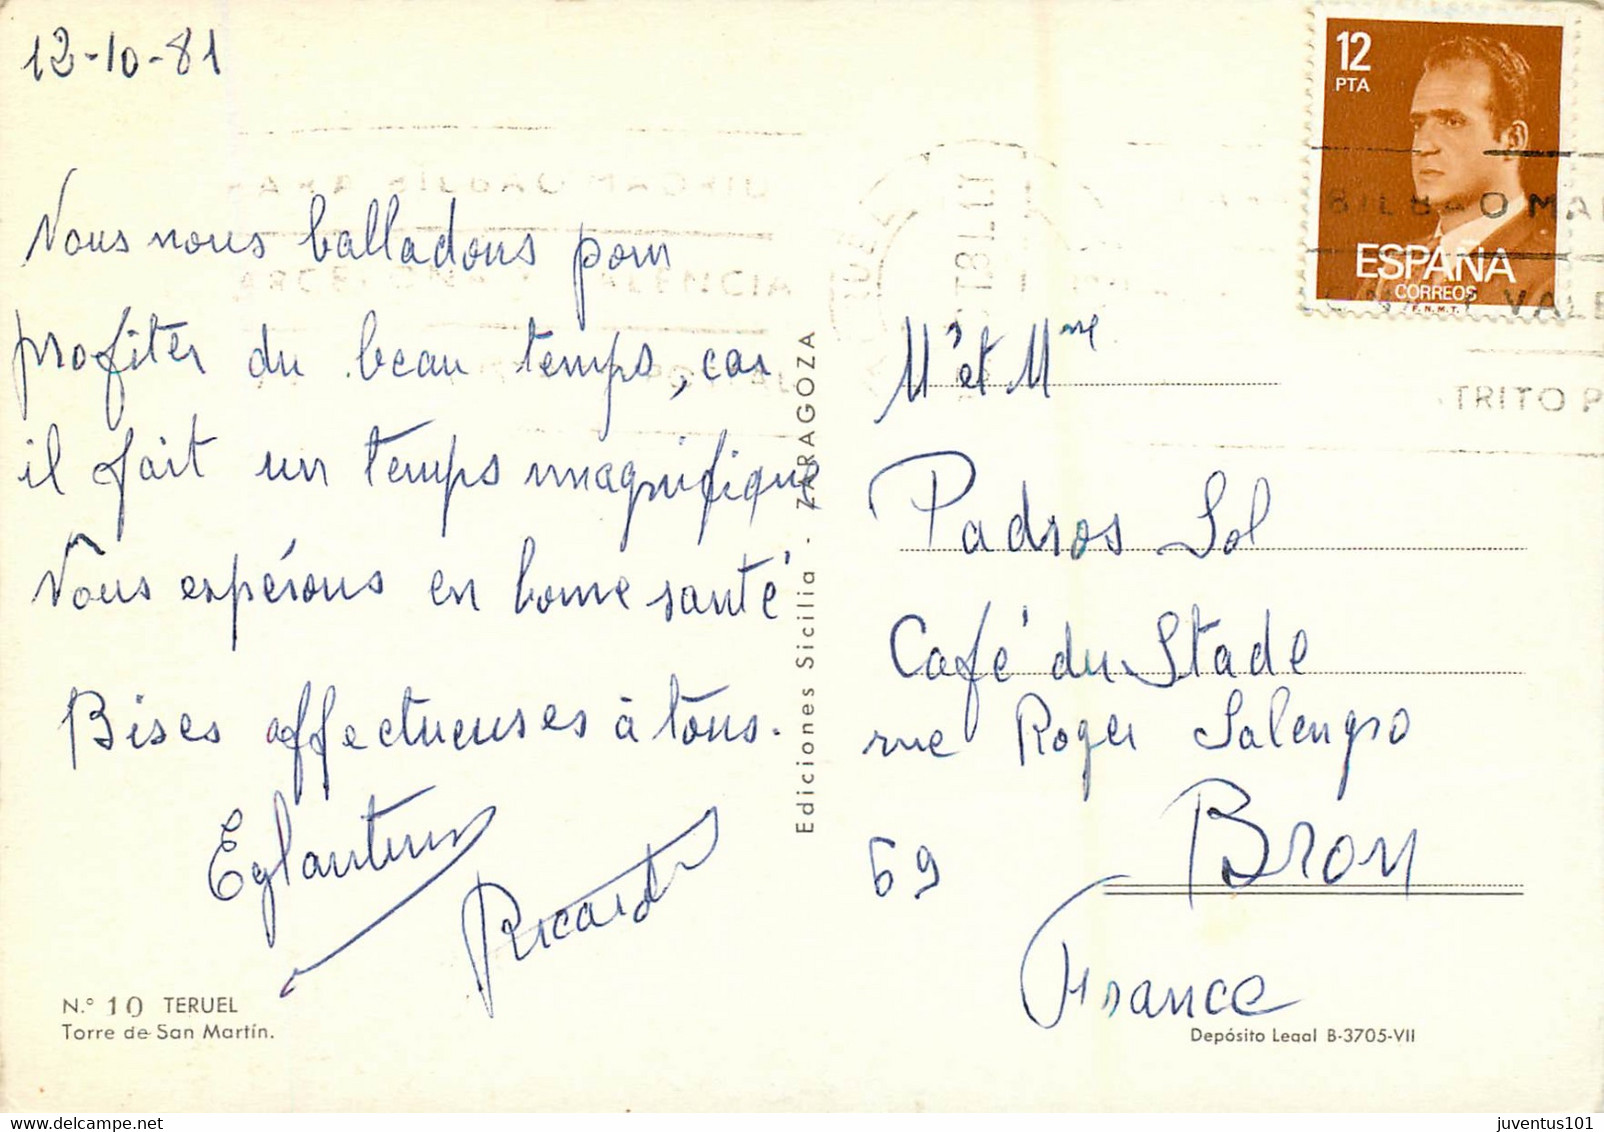 12-10-81
Nous nous balladons pour
profiter du beau temps, car
il fait un temps magnifique
Vous espérons en bonne santé
Bises affectueuses à tous.
Eglantine
Ricardo
N.º 10 TERUEL
Torre de San Martín.
Ediciones Sicilia - ZARAGOZA
12
PTA
ESPAÑA
CORREOS
F.N.M.T.
BILBAO MA
VALE
TRITO P
M et Mme
Padros Sol
Café du Stade
rue Roger Salengro
69 Bron
France
Depósito Legal B-3705-VII
juventus101